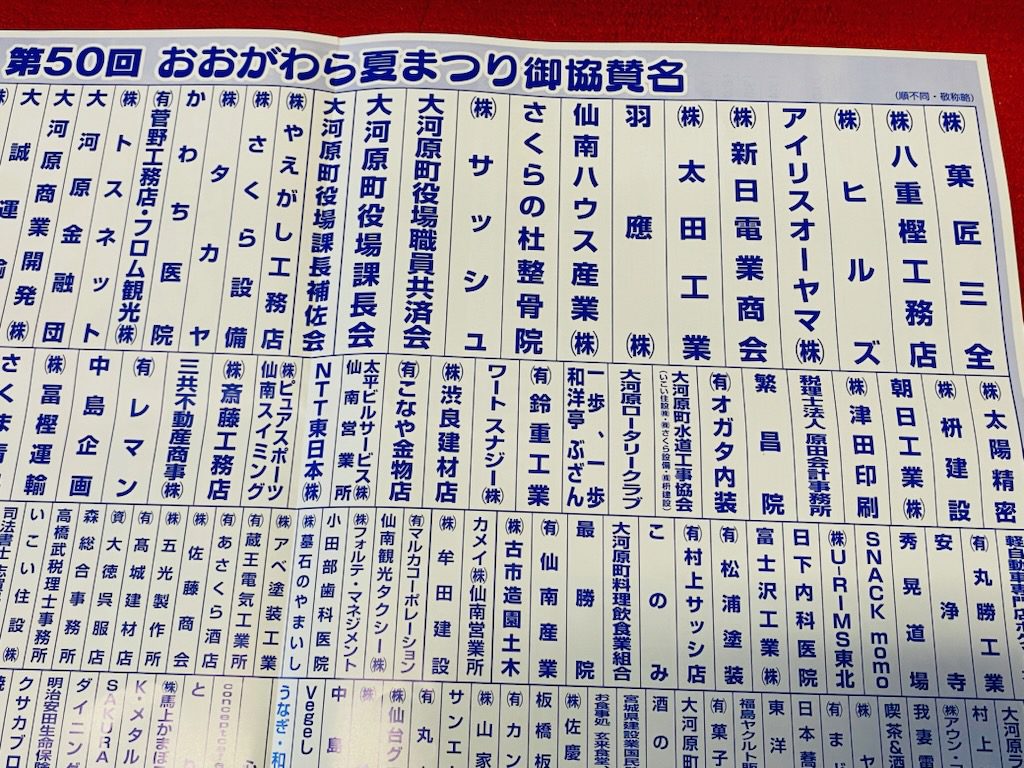 第50回 おおがわら夏まつり御協賛名
(順不同・敬称略)
㈱菓匠三全
㈱八重樫工務店
㈱ヒルズ
アイリスオーヤマ㈱
㈱新日電業商会
㈱太田工業
羽應㈱
仙南ハウス産業㈱
さくらの杜整骨院
㈱サッシュ
大河原町役場職員共済会
大河原町役場課長会
大河原町役場課長補佐会
㈱やえがし工務店
㈱さくら設備
㈱タカヤ
かわち医院
㈲菅野工務店・フロム観光㈱
㈱トスネット
大河原金融団
大河原商業開発㈱
大誠運輸㈱
㈱太陽精密
㈱枡建設
朝日工業㈱
㈱津田印刷
税理士法人 原田会計事務所
繁昌院
㈲オガタ内装
大河原町水道工事協会
(いこい住設㈱・㈱さくら設備・㈱枡建設)
大河原ロータリークラブ
一歩、一歩
和洋亭ぶざん
㈲鈴重工業
ワートスナジー㈱
㈱渋良建材店
㈲こなや金物店
太平ビルサービス㈱
仙南営業所
NTT東日本㈱
㈱ピュアスポーツ
仙南スイミング
㈱斎藤工務店
三共不動産商事㈱
㈲レマン
中島企画
㈱冨樫運輸
さくま
㈲丸勝工業
安浄寺
秀晃道場
SNACK momo
㈱U-RIMS東北
日下内科医院
富士沢工業㈱
㈲松浦塗装
㈲村上サッシ店
このみ
大河原町料理飲食業組合
最勝院
㈲仙南産業
㈱古市造園土木
カメイ㈱仙南営業所
㈱牟田建設
㈲マルカコーポレーション
仙南観光タクシー㈱
㈱フォルテ・マネジメント
小田部歯科医院
㈱墓石のやまいし
㈱アベ塗装工業
㈲蔵王電気工業所
㈲あさくら酒店
㈱佐藤商会
㈱五光製作所
㈲髙城建材店
㈾大徳呉服店
森総合事務所
高橋武税理士事務所
いこい住設㈱
司法書士志賀
大河原ラ
村上
㈱アウン・コ
我妻電
喫茶&酒
㈱ヤ
㈲
日本蕎
東洋
福島ヤクルト販
㈲菓子
大河原町
酒の
宮城県建設業国民
お食事処 玄来食堂
㈱佐慶
板橋板
㈲カン
㈱山家
サンエ
㈲丸
㈱仙台グ
㈱
中島
Vegeし
うなぎ・和
conceptcaf
おお
とわ
㈱馬上かまぼこ
K・メタル
SAKURA
ダイニング
明治安田生命保険
クサカプロ